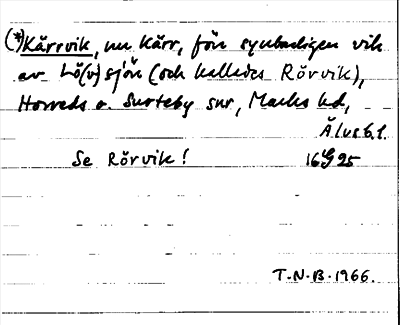 (*)Kärrvik, nu Kärr, förr synbarligen vik
av Lö(v)sjön (och kallades Rörvik),
Horreds o. Surteby snr, Marks hd,
Älvsb. l.
Se Rörvik! 16/9 25
T.N.B. 1966.